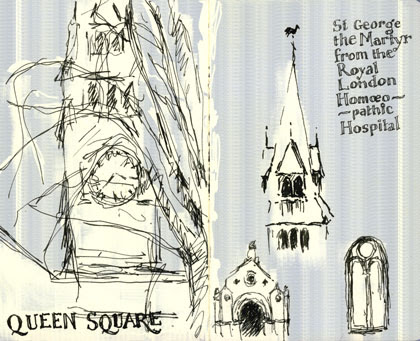 St George
the Martyr
from the
Royal
London
Homœo-
-pathic
Hospital
QUEEN SQUARE